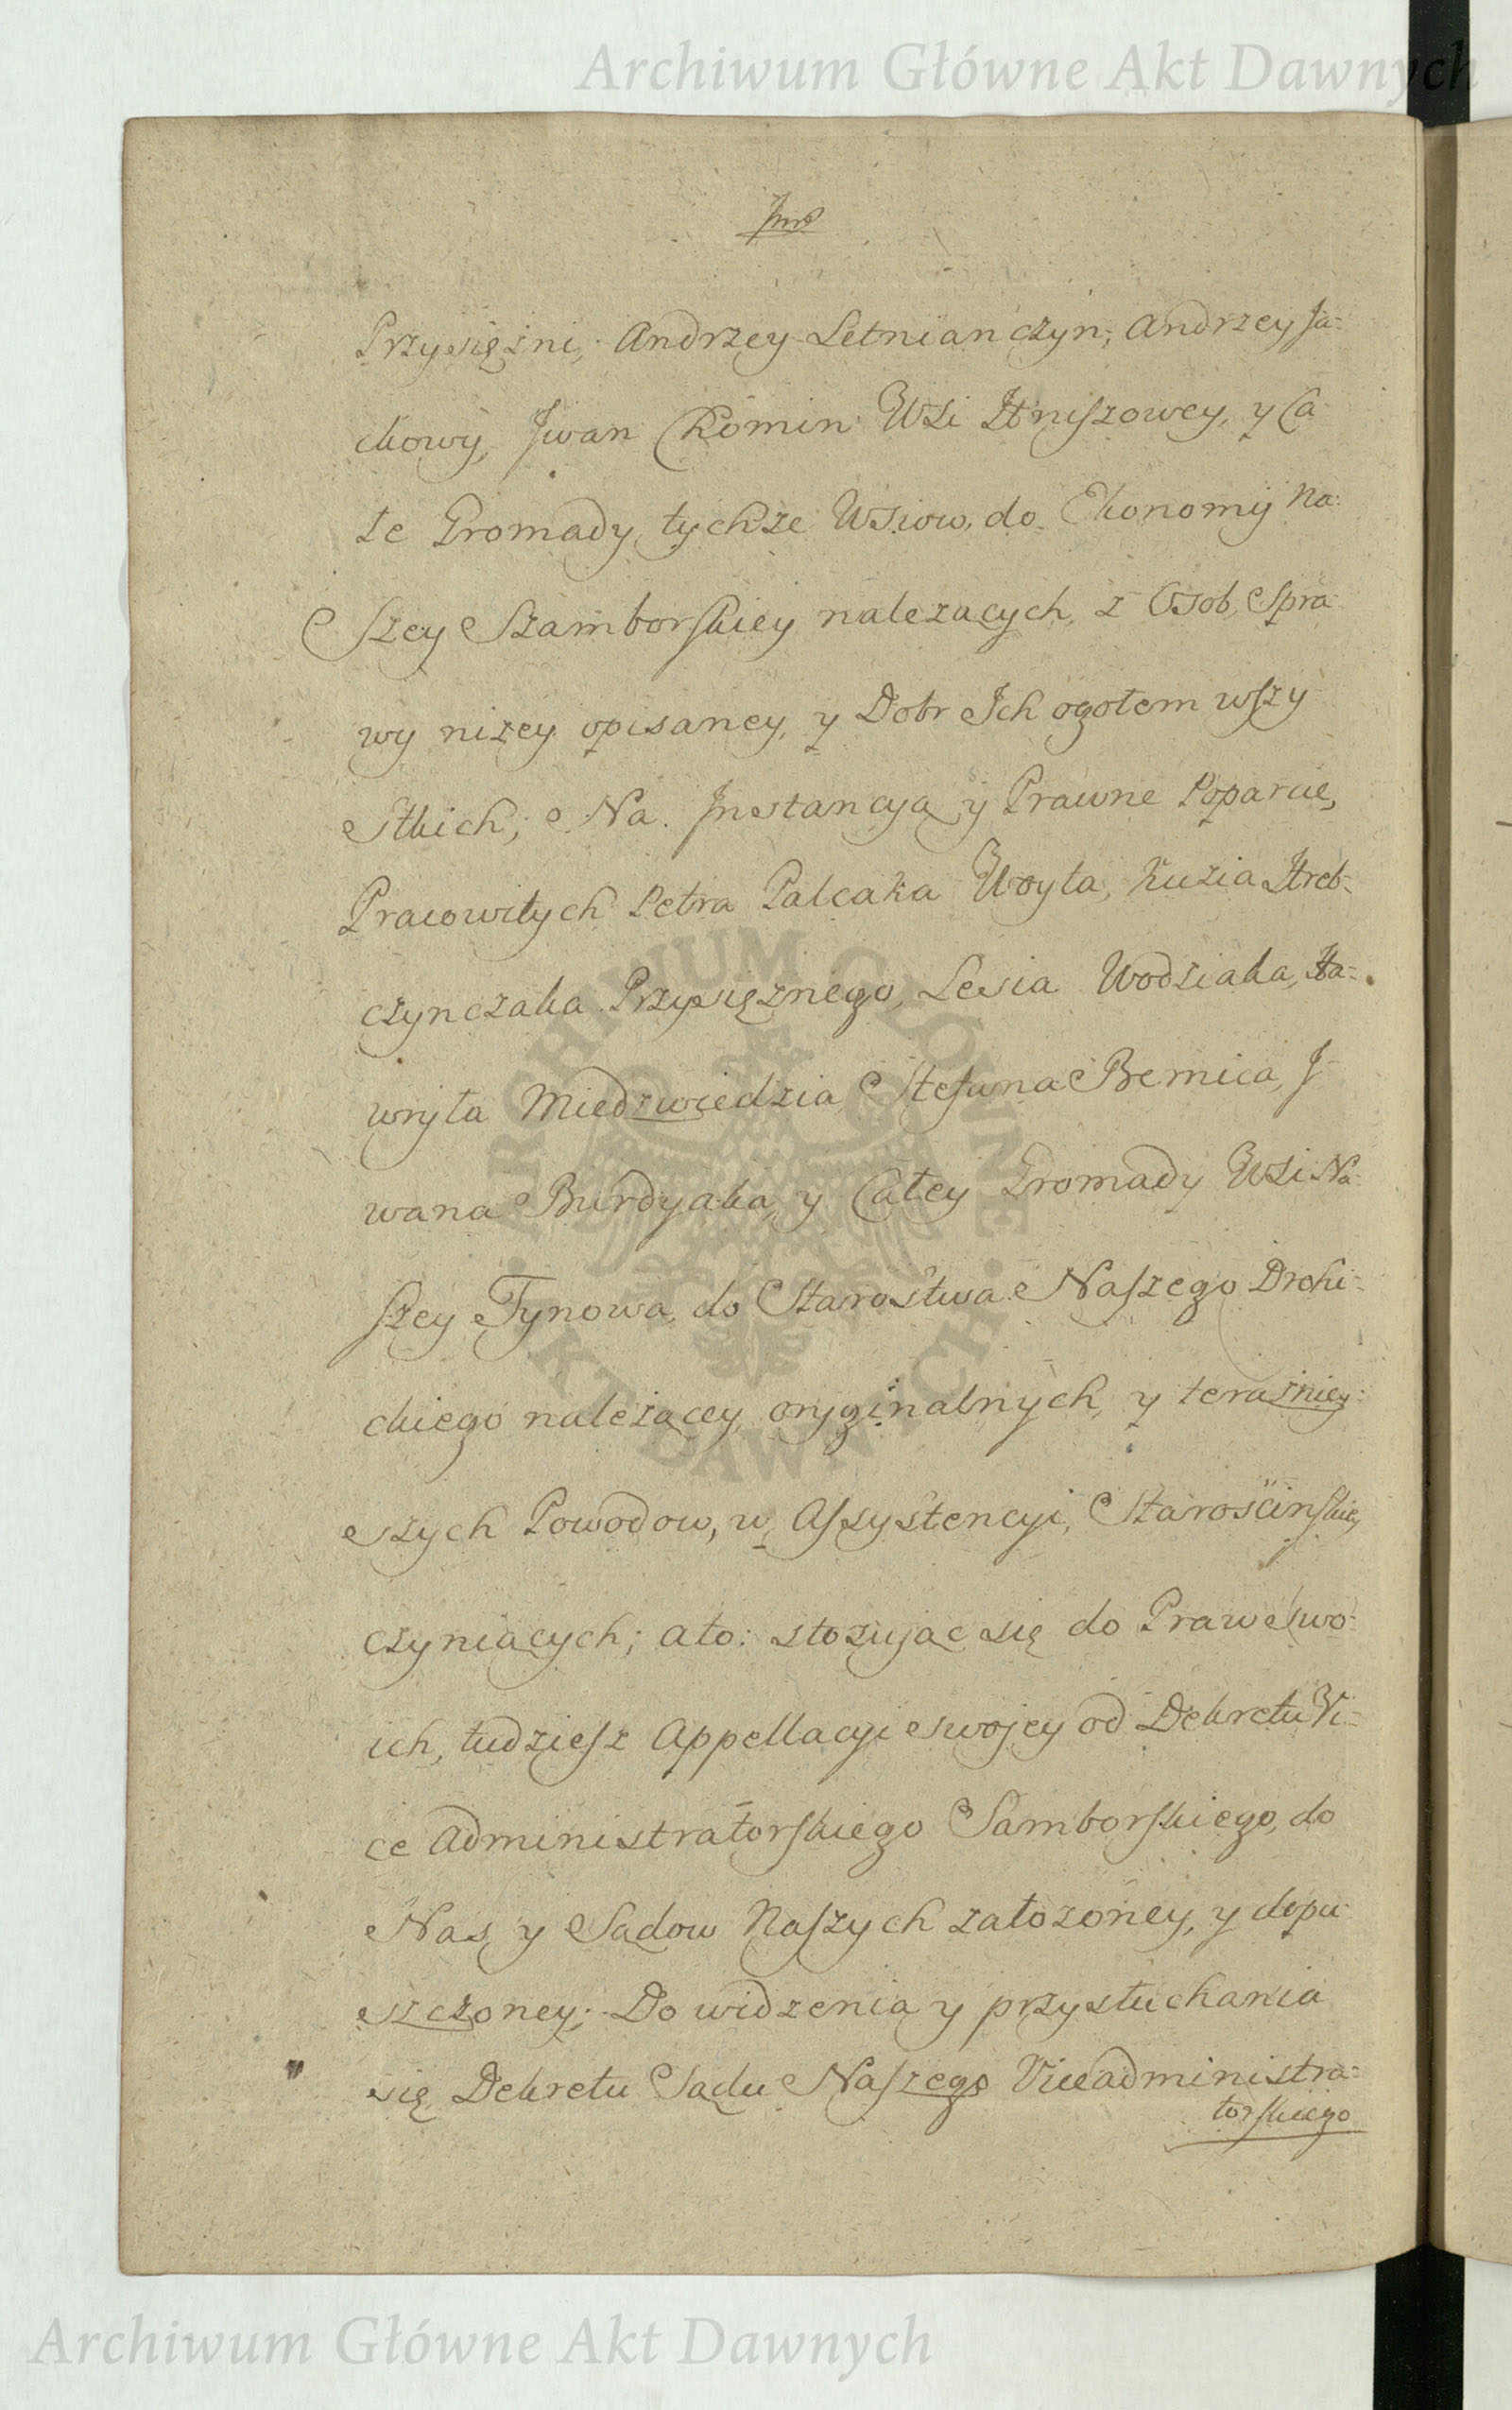 Archiwum Główne Akt Dawnych
Przysięzni, Andrzey Letnianczyn, Andrzey Ja-
ckowy, Jwan Romin Wsi y Ca-
łe Gromady, tychze Wsiow, do Ekonomij Na-
szey Szamborskiey nalezących, z Osob, Spra-
wy nizey opisaney, y Dobr Ich ogołem wszy-
stkich; Na Jnstancyą y Prawne Poparcie,
Pracowitych Petra Palcaka Woyta, Kuzia Hreb-
czynczaka Przysięznego, Lesia Wodziaka, Ha-
wryła Miedzwiedzia, Stefana Bernica, J-
wana Burdyaka, y Całey Gromady Wsi Na-
szey Tynowa, do Starostwa Naszego Drohi-
ckiego nalezącey, oryginalnych, y terazniey-
szych Powodow, w Assystencyi, Starościnskiey,
czyniących; ato: stosując się do Praw swo-
ich, tudziesz Appellacyi swojey od Dekretu Vi-
ce Administratorskiego Samborskiego, do
Nas, y Sądow Naszych załozoney, y dopu-
szczoney; Do widzenia y przysłuchania
się Dekretu Sądu Naszego Viceadministra-
torskiego
ARCHIWUM GŁÓWNE AKT DAWNYCH
Archiwum Główne Akt Dawnych